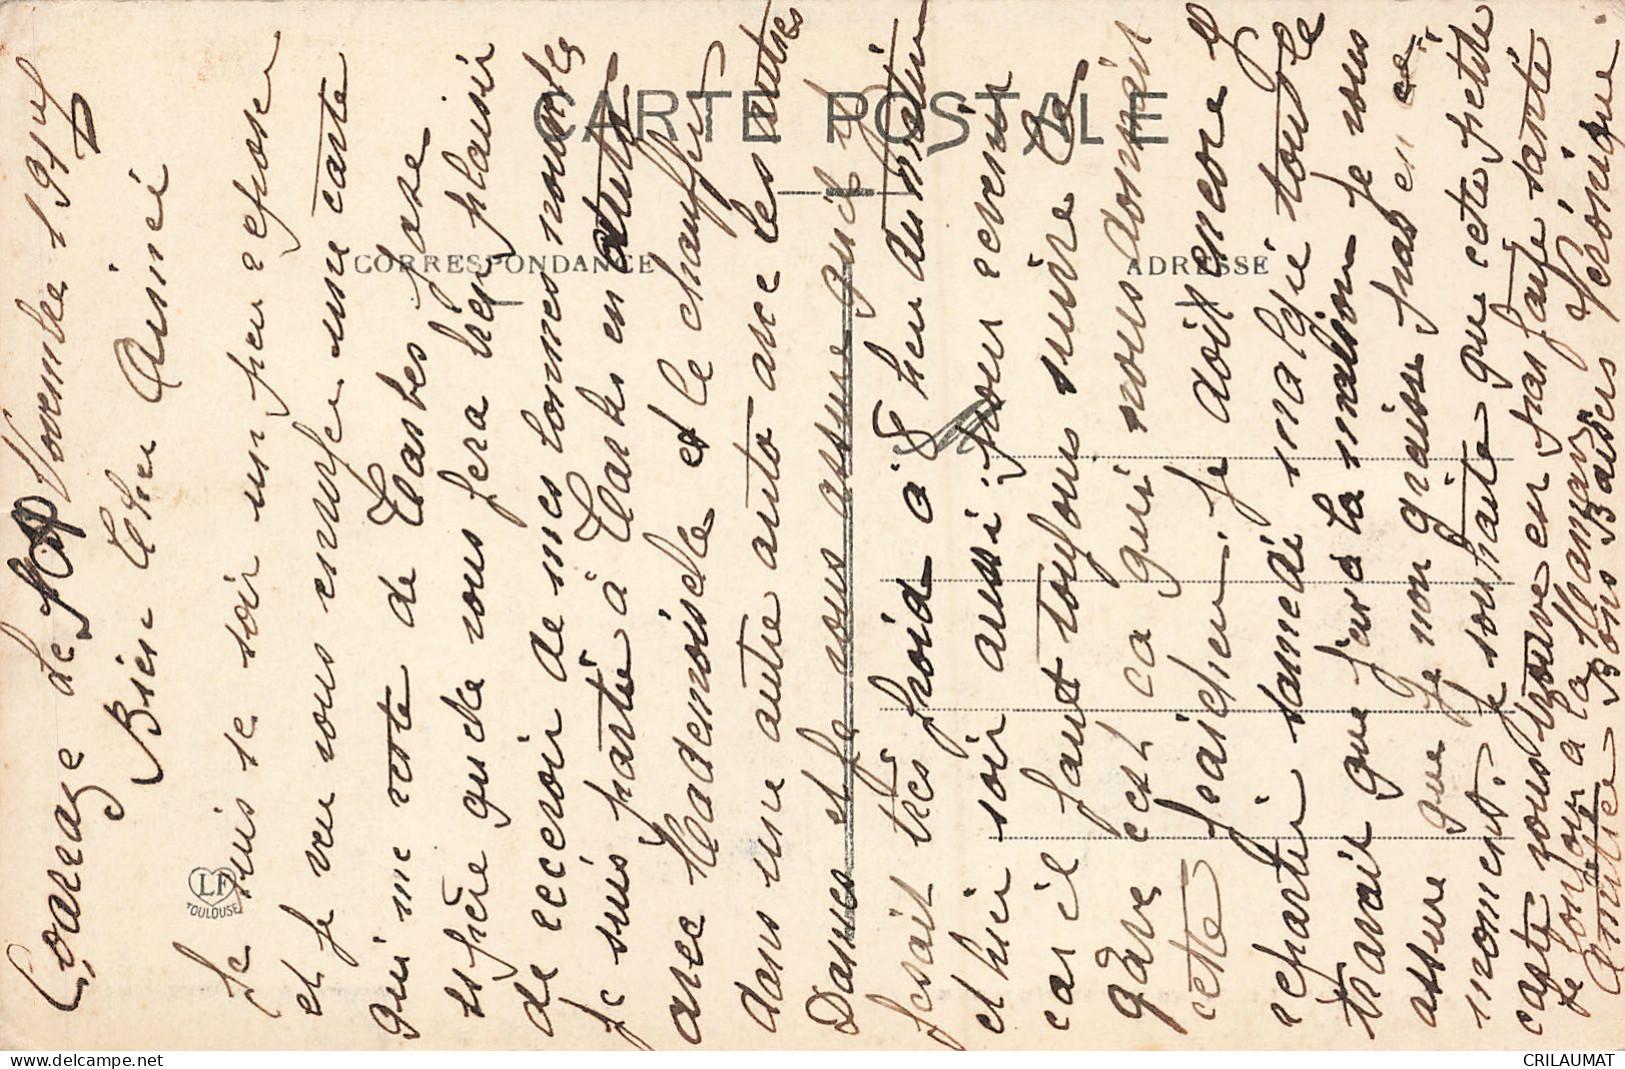 CARTE POSTALE
CORRESPONDANCE
ADRESSE
LF
TOULOUSE
Coarraze le Novembre 191
Bien cher Aimé
Je suis se soir un peu reposer
et je veu vous envoye une carte
qui me reste de Tarbes jose
espère que sa vous fera bien plaisir
de recevoir de mes bonnes nouvelles
je suis partie à Tarbes en auto
avec Mademoiselle et le chauffeur
dans une autre auto avec les autres
Dames et je vous assure quil
fesait très froid à 8 heu du matin
et hier soir aussi pour revenir
car il faut toujours suivre la
gave est ca qui nous donnait
cette fraicheur. Je doit encore y
repartir samedi malgré tout le
travail que j'ard à la maison je vous
assure que je non graisse pas en ce
moment. je souhaite que cete petite
carte vous trouve en parfaite santé
le bonjour a la Maman Véronique
Amitiés Bons Baisers
CRILAUMAT